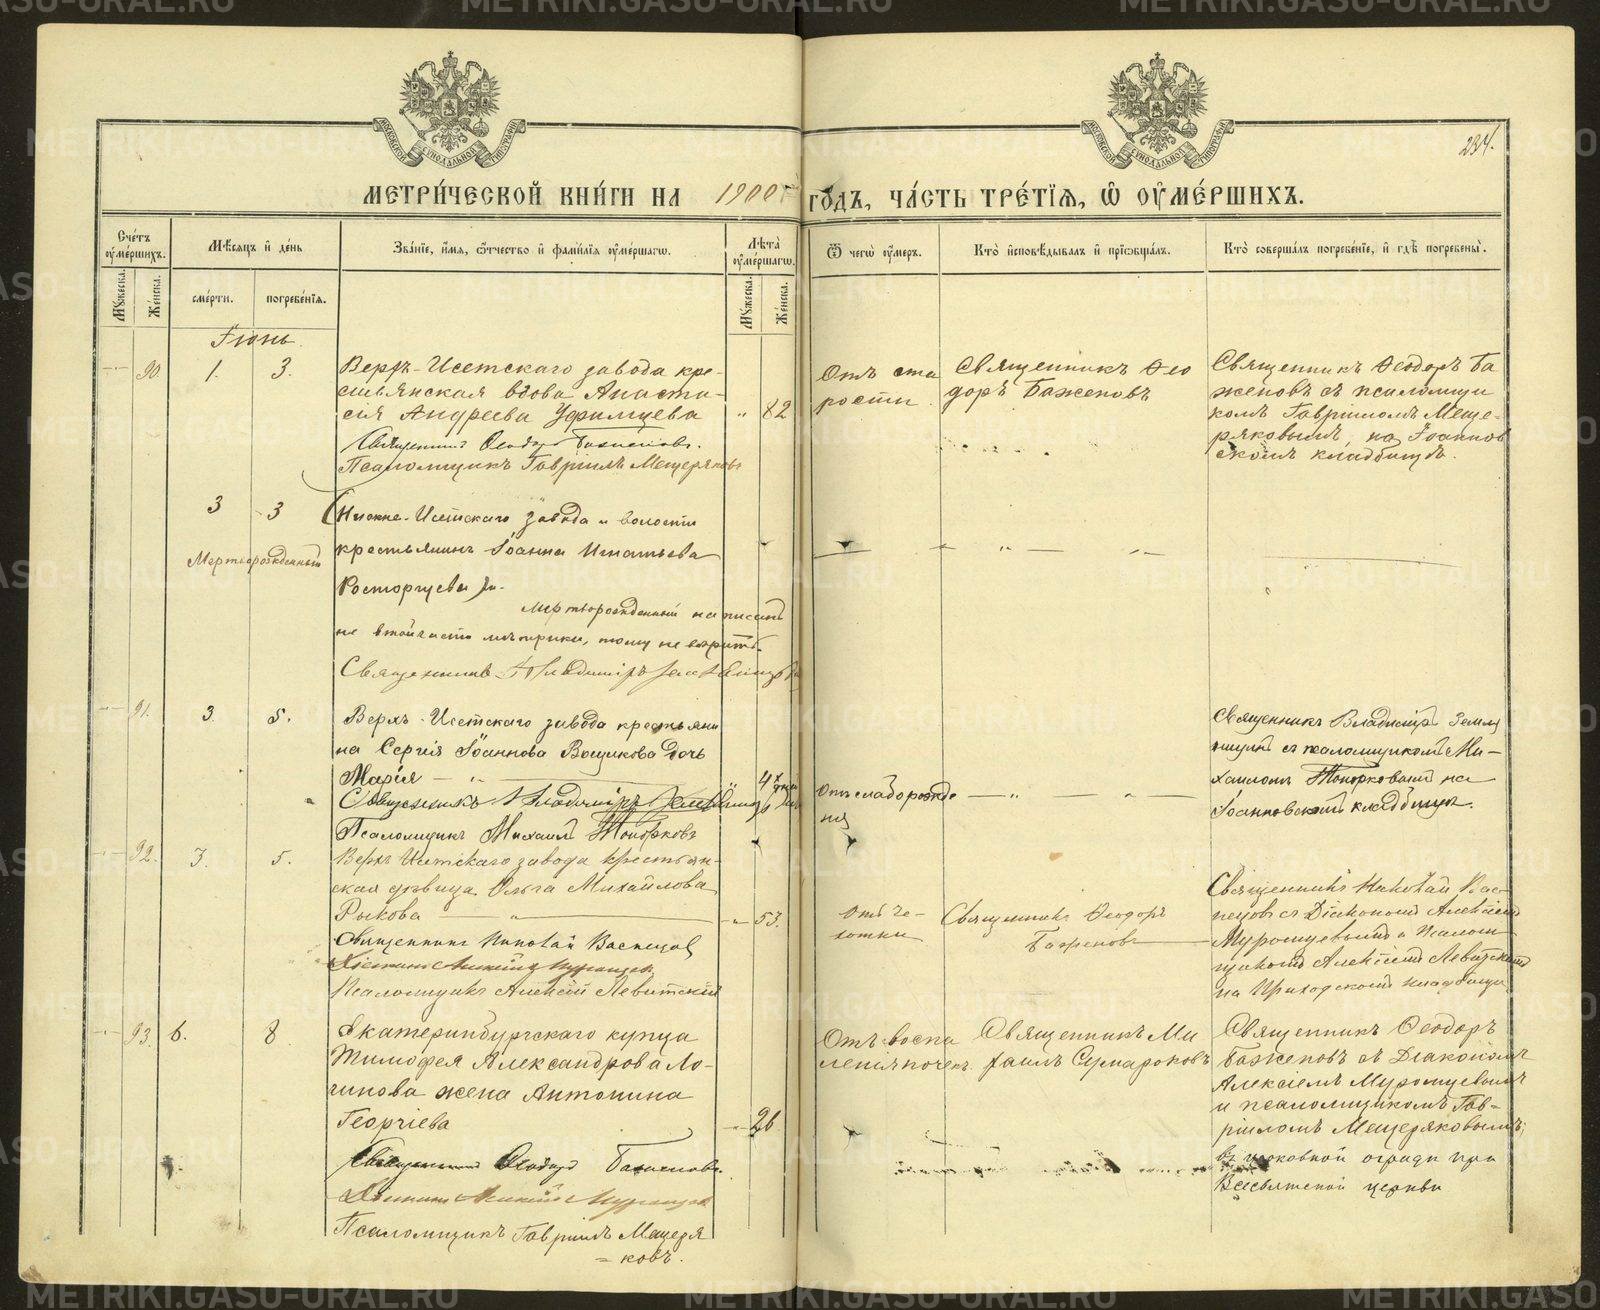 МЕТРИ́ЧЕСКОЙ КНИ́ГИ НА 1900 ГО́ДЪ, ЧА́СТЬ ТРЕ́ТІѦ, Ѽ ОУ҆МЕ́РШИХЪ.
234.
Сче́тъ оу҆ме́ршихъ.
Мꙋ́жеска.
Же́нска.
Мѣ́сѧцъ и҆ де́нь
сме́рти.
погребе́нїѧ.
Зва́нїе, и҆́мѧ, ѻ҆́тчество и҆ фамѝлїѧ оу҆ме́ршагѡ.
Лѣ́та оу҆ме́ршагѡ.
Мꙋ́жеска.
Же́нска.
Ѿ чегѡ̀ оу҆́меръ.
Кто̀ и҆сповѣ́дывалъ и҆ прїѡбща́лъ.
Кто̀ соверша́лъ погребе́нїе, и҆ гдѣ̀ погребены̀.
Іюнь.
90. 1. 3.
Верхъ-Исетскаго завода кре-
стьянская вдова Анаста-
сія Андреева Уфимцева
" 82
Священникъ Ѳеодоръ Баженовъ.
Псаломщикъ Гавріилъ Мещеряковъ
Отъ ста
рости
Священникъ Ѳео
доръ Баженовъ
Священникъ Ѳеодоръ Ба
женовъ съ псаломщи
комъ Гавріиломъ Меще-
ряковымъ, на Іоаннов
скомъ кладбищѣ.
3 3
Мертворожденный
Нижне-Исетскаго завода и волости
крестьянинъ Іоанна Игнатьева
Расторгуева
мертворожденный написанъ
не въ той части метрики, тому не вѣрить.
Священникъ Владиміръ Земляницынъ
91. 3. 5.
Верхъ-Исетскаго завода крестьяни
на Сергія Іоаннова Вощикова дочь
Марія
4 дня
Священникъ Владиміръ Земляницынъ
Псаломщикъ Михаилъ Топорковъ
Отъ слаборожде
нія
Священникъ Владиміръ Земля
ницынъ съ псаломщикомъ Ми-
хаиломъ Топорковымъ на
Іоанновскомъ кладбищѣ.
92. 3. 5.
Верхъ-Исетскаго завода крестьян-
ская дѣвица Ольга Михайлова
Рыкова
53.
Священникъ Николай Васнецовъ
Діаконъ Алексій Муромцевъ
Псаломщикъ Алексій Левитскій
Отъ ча-
хотки
Священникъ Ѳеодоръ
Баженовъ
Священникъ Николай Вас-
нецовъ съ Діакономъ Алексіемъ
Муромцевымъ и Псалом-
щикомъ Алексіемъ Левитскимъ
на Приходскомъ кладбищѣ
93. 6. 8
Екатеринбургскаго купца
Тимофея Александрова Ло-
гинова жена Антонина
Георгіева
26
Священникъ Ѳеодоръ Баженовъ.
Діаконъ Алексій Муромцевъ
Псаломщикъ Гавріилъ Мещеря
=ковъ.
Отъ воспа
ленія почекъ
Священникъ Ми
хаилъ Сумароковъ
Священникъ Ѳеодоръ
Баженовъ съ Діакономъ
Алексіемъ Муромцевымъ
и псаломщикомъ Гав-
ріиломъ Мещеряковымъ,
въ церковной оградѣ при
Всесвятской церкви
METRIKI.GASO-URAL.RU